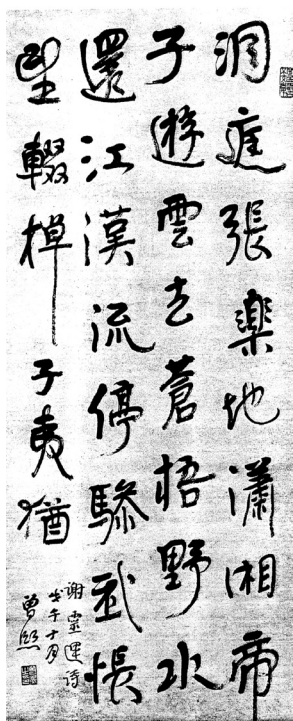 洞庭張樂地瀟湘帝
子遊雲去蒼梧野水
還江漢流停驂我悵
望輟棹子夷猶
謝靈運詩
戊午十月
曾熙